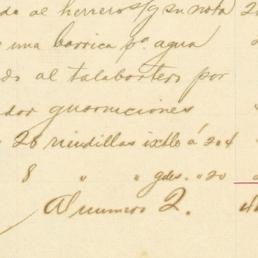 da al herrero s/g su nota 2
una barrica pa. agua
do al talabartero por
dor guarniciones
20 riendillas ixtle á 204
8 " " gdes. " 20
Al numero 2.